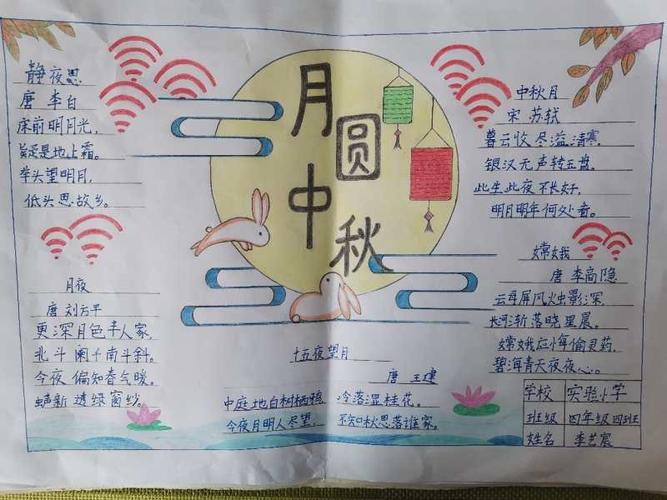 月圆中秋
静夜思
唐 李白
床前明月光，
疑是地上霜。
举头望明月，
低头思故乡。
月夜
唐 刘方平
更深月色半人家，
北斗阑干南斗斜。
今夜偏知春气暖，
虫声新透绿窗纱。
十五夜望月
唐 王建
中庭地白树栖鸦，冷落湿桂花。
今夜月明人尽望，不知秋思落谁家。
中秋月
宋 苏轼
暮云收尽溢清寒，
银汉无声转玉盘。
此生此夜不长好，
明月明年何处看。
嫦娥
唐 李商隐
云母屏风烛影深，
长河渐落晓星晨。
嫦娥应悔偷灵药，
碧海青天夜夜心。
学校 实验小学
班级 四年级四班
姓名 李艺宸